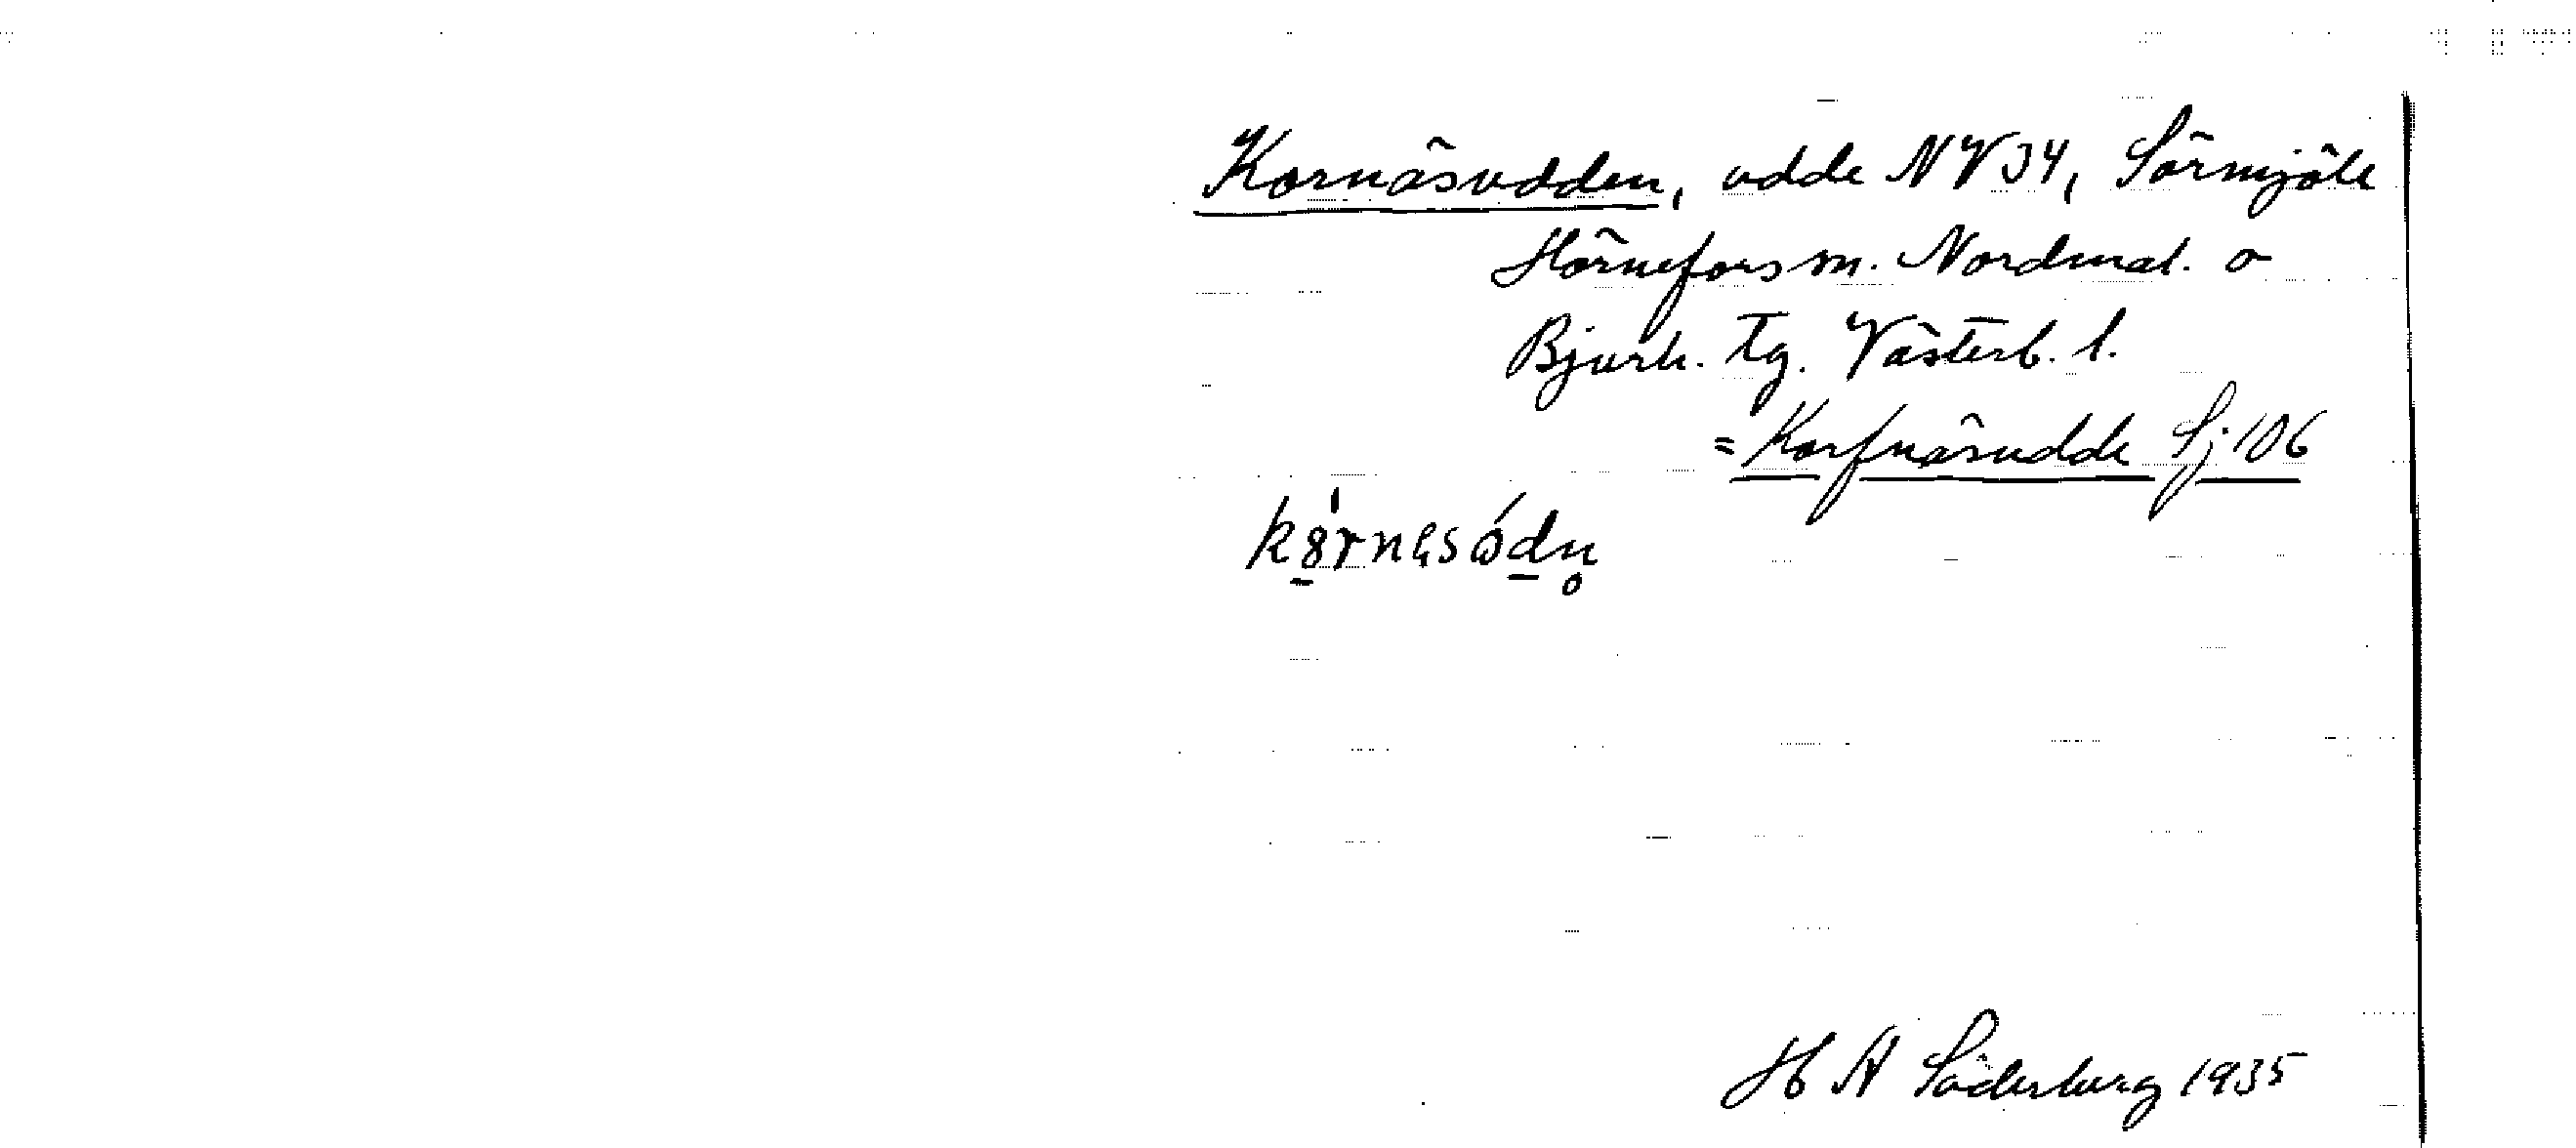 Kornäsudden, udde NV34, Sörmjöle
Hörnefors sn. Nordmal. o
Bjurh. tg. Västerb. l.
= Korfnäsudde Sj 106
H A Söderberg 1935